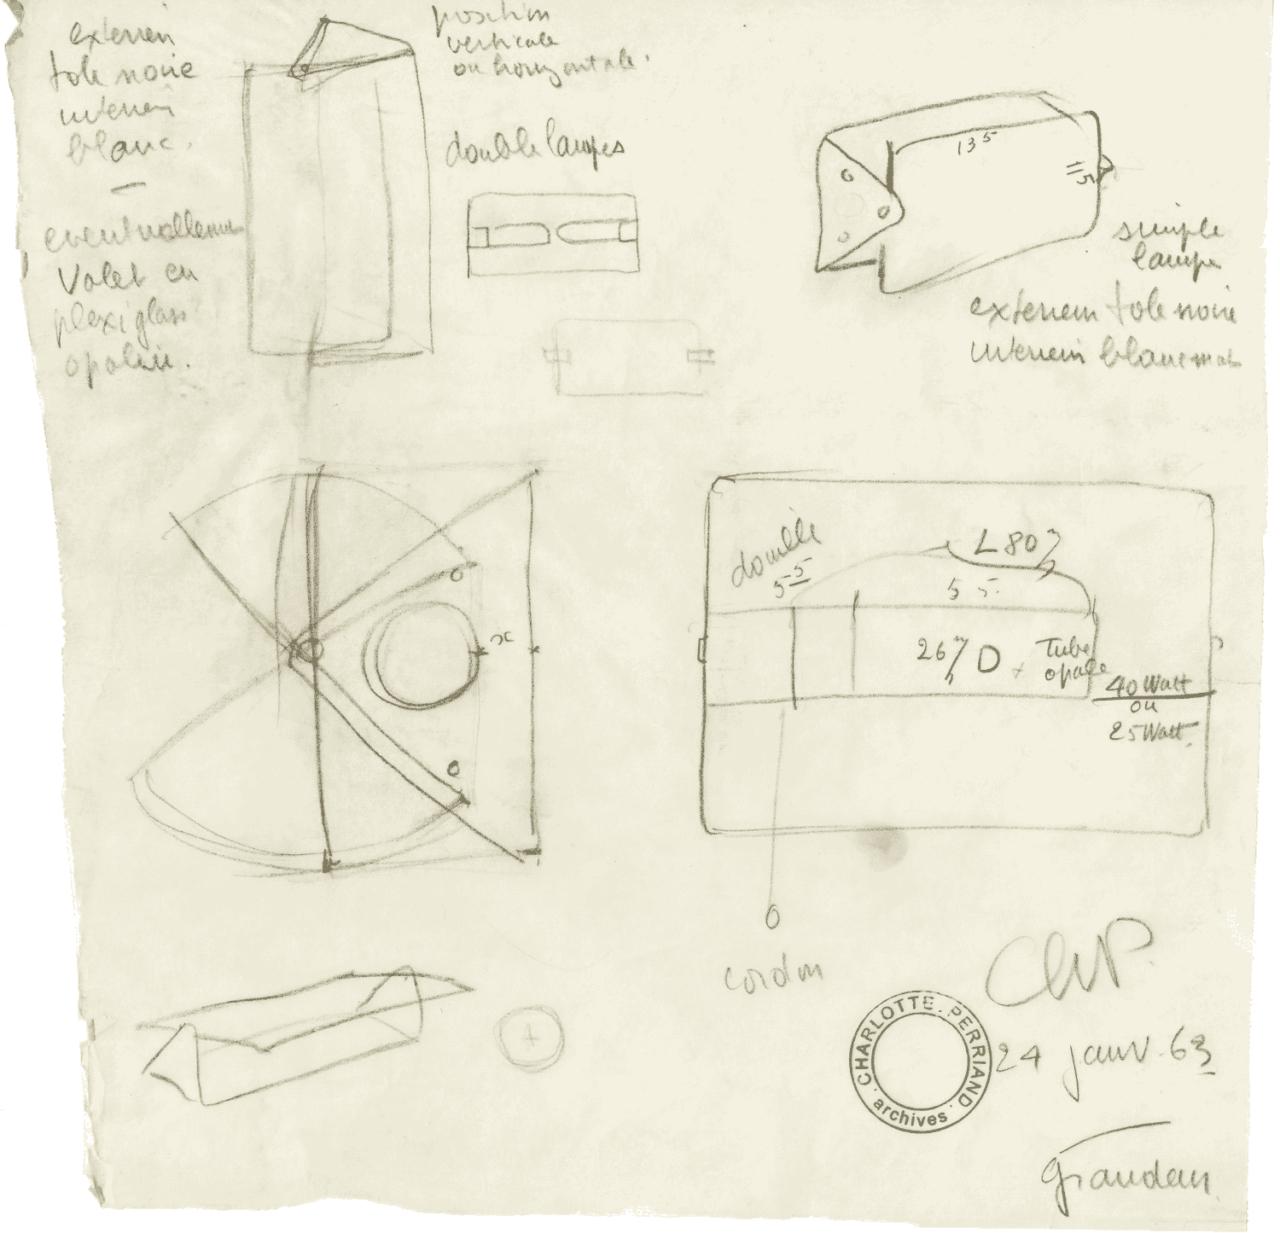 exterieur
tole noire
interieur
blanc.
eventuellement
Volet en
plexiglass
opalin.
position
verticale
ou horizontale.
double lampes
135
115
simple
lampe
exterieur tole noire
interieur blanc mat
douille
55
L 80
55
26 D
Tube
opale
40 Watt
ou
25 Watt
cordon
ChP.
24 janv. 63
CHARLOTTE · PERRIAND · archives ·